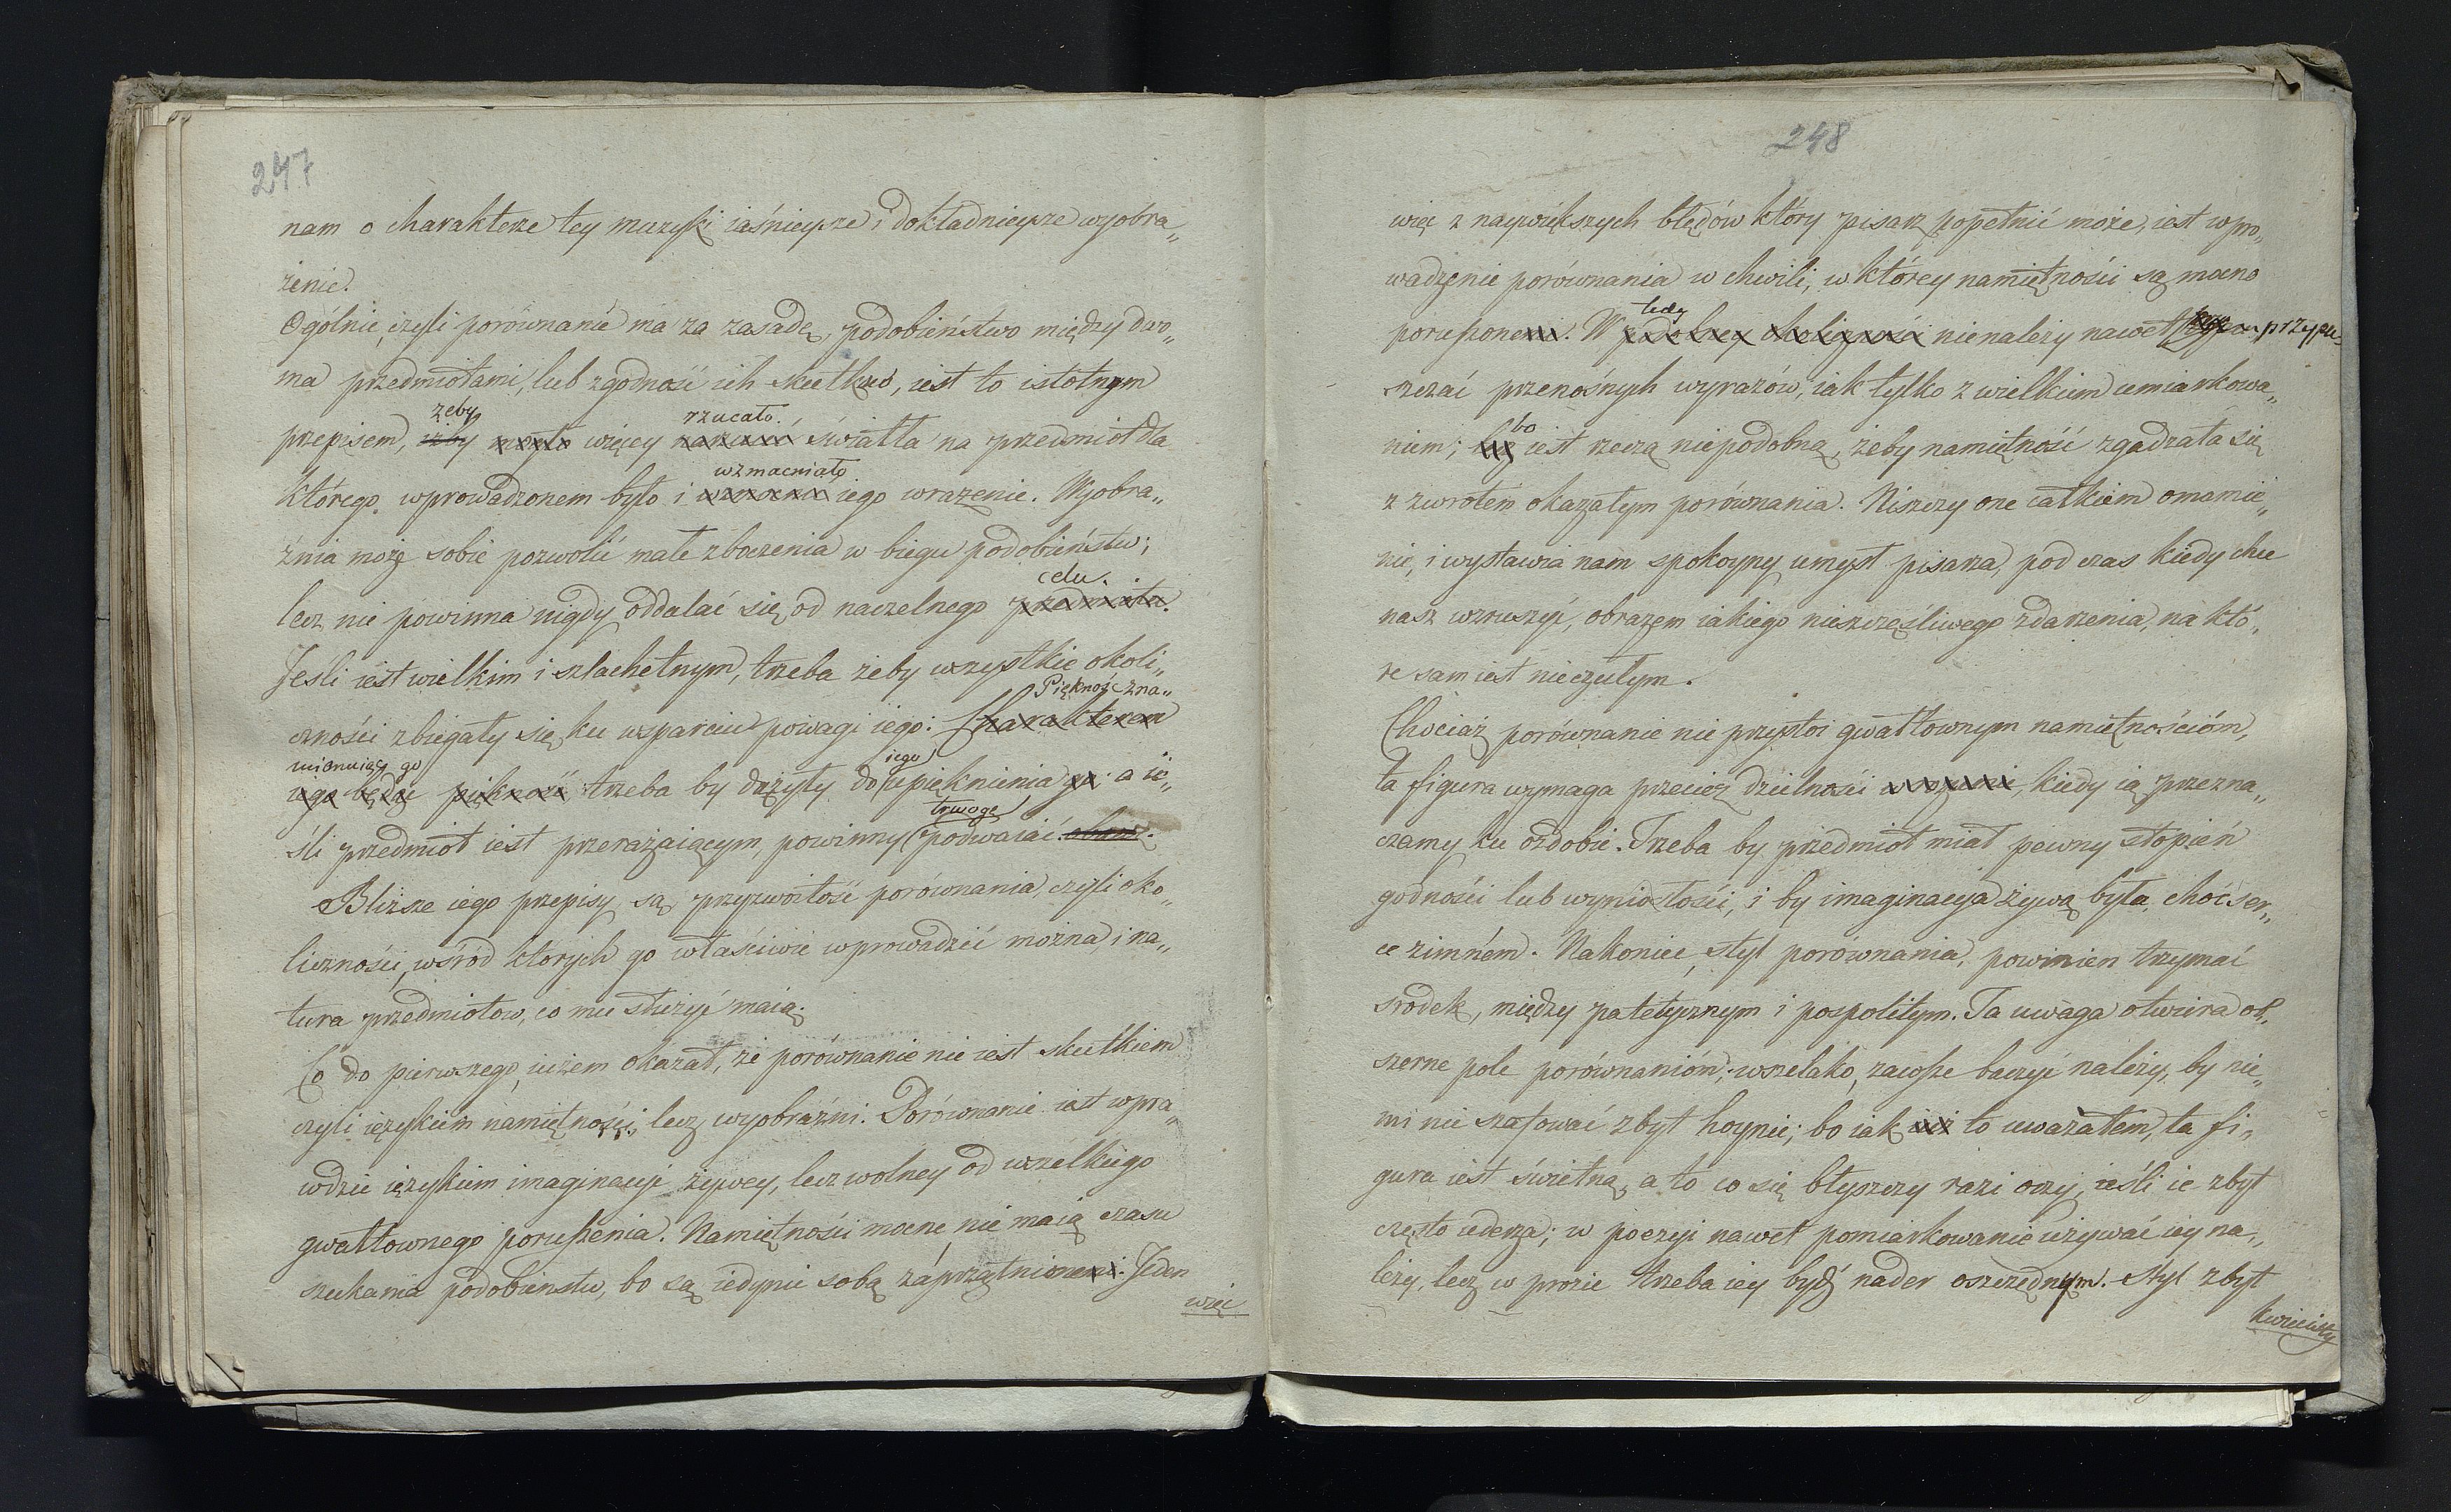 247
nam o charakterze tey muzyki iaśnieysze i dokładnieysze wyobra„
żenie.
Ogólnie, ieżeli porównanie ma za zasadę, podobieństwo między dwo„
ma przedmiotami, lub zgodność ich skutków, iest to istotnym
żeby rzucało.
przepisem, iżby mogło więcey rzucać światła na przedmiot dla
wzmacniało
którego wprowadzonem było i iego wrażenie. Wyobra„
źnia może sobie pozwolić małe zboczenia w biegu podobieństw;
celu.
lecz nie powinna nigdy oddalać się od naczelnego przedmiotu.
Jeśli iest wielkim i szlachetnym, trzeba żeby wszystkie okoli„
Piękność zna„
czności zbiegały się ku wsparciu powagi iego: Charakterem
mionuiącą go iego
iego będzie piękność trzeba by dążyły do upięknienia go: a ie„
trwogę
śli przedmiot iest przerażaiącym, powinny podwaiać
Bliższe iego przepisy są, przyzwoitość porównania, czyli oko„
liczności, wśród których go właściwie wprowadzić można, i na„
tura przedmiotów, co mu służyć maią.
Co do pierwszego, iużem okazał, że porównanie nie iest skutkiem
czyli ięzykiem namiętności, lecz wyobraźni. Porównanie iest wpra„
wdzie ięzykiem imaginacyi żywey, lecz wolney od wszelkiego
gwałtownego poruszenia. Namiętności mocne nie maią czasu
szukania podobieństw, bo są iedynie sobą zaprzątnione. Jeden
więc
248
więc z naywiększych błędów który pisarz popełnić może, iest wpro„
wadzenie porównania w chwili, w którey namiętności są mocno
tedy
poruszone. W podobney okoliczności nienależy nawet przypu„
szczać przenośnych wyrazów, iak tylko z wielkiem umiarkowa„
bo
niem; iest rzeczą niepodobną, żeby namiętność zgadzała się
z zwrotem okazałym porównania. Niszczy one całkiem omamie„
nie, i wystawia nam spokoyny umysł pisarza, pod czas kiedy chce
nasz wzruszyć, obrazem iakiego nieszczęśliwego zdarzenia, na któ„
re sam iest nieczułym.
Chociaż porównanie nie przystoi gwałtownym namiętnościóm,
ta figura wymaga przecież dzielności , kiedy ią przezna„
czamy ku ozdobie. Trzeba by przedmiot miał pewny stopień
godności lub wyniosłości, i by imaginacya żywą była, choć ser„
ce zimném. Nakoniec, styl porównania, powinien trzymać
srodek, między patetycznym i pospolitym. Ta uwaga otwiera ob„
szerne pole porównanióm; wszelako, zawsze baczyć należy, by nie„
mi nie szafować zbyt hoynie; bo iak iuż to uważałem, ta fi„
gura iest świetną, a to co się błyszczy razi oczy, ieśli ie zbyt
często uderza; w poezyi nawet pomiarkowanie używać iey na„
leży, lecz w prozie trzeba iey bydź nader oszczędnym. Styl zbyt
kwiecisty